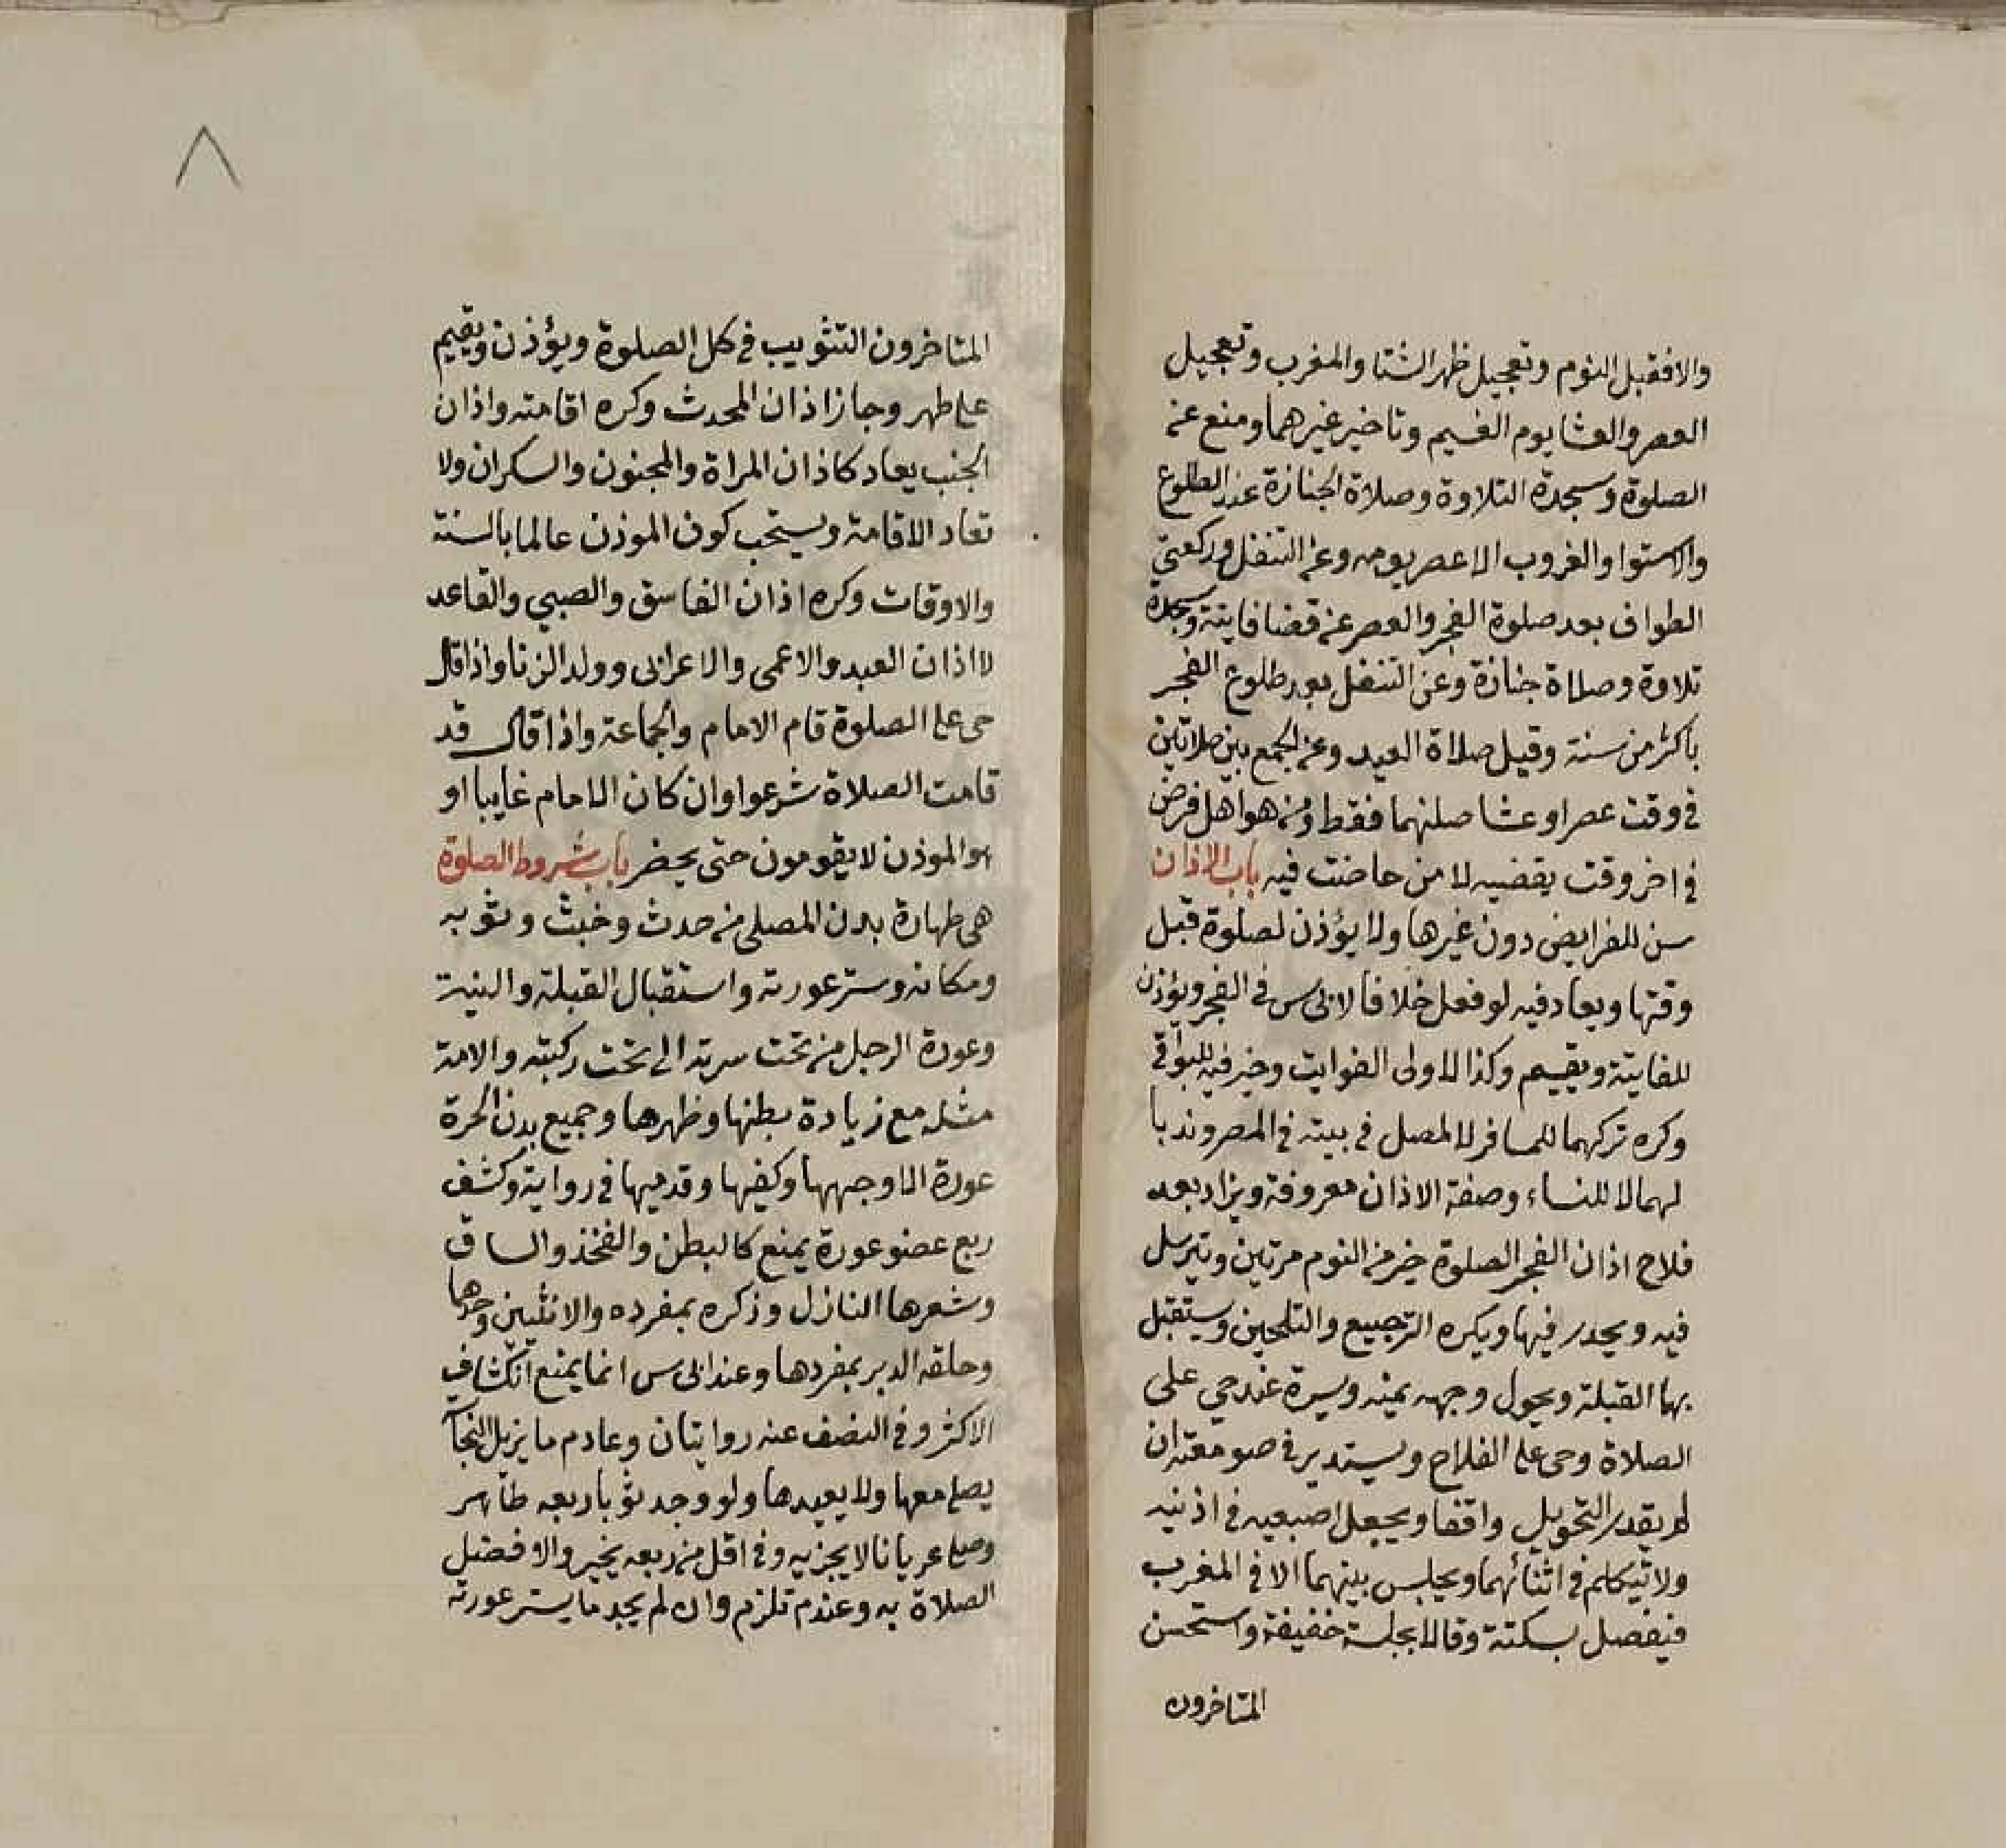 والا فقبل النوم وتعجيل ظهر الشتا والمغرب وتعجيل
العصر والعشا يوم الغيم وتاخير غيرهما ومنع عن
الصلوة وسجدة التلاوة وصلاة الجنازة عند الطلوع
والاستوا والغروب الا عصر يومه وعن التنفل وركعتي
الطواف بعد صلوة الفجر والعصر عن قضا فايتة وسجدة
تلاوة وصلاة جنازة وعن التنفل بعد طلوع الفجر
باكثر من سنته وقبل صلاة العيد وعن الجمع بين صلاتين
في وقت عصر او عشا صلتهما فقط ومن هو اهل فرض
في اخر وقت يقضيه لا من حاضت فيه باب الاذان
سن للفرايض دون غيرها ولا يؤذن لصلوة قبل
وقتها ويعاد فيه لو فعل خلافا لابى س في الفجر ويؤذن
للفايتة ويقيم وكذا لاولى الفوايت وخير فيه للبواقي
وكره تركهما للمسافر لا لمصل في بيته في المصر وندبا
لهما لا للنساء وصفة الاذان معروفة ويزاد بعد
فلاح اذان الفجر الصلوة خير من النوم مرتين ويترسل
فيه ويحدر فيها ويكره الترجيع والتلحين ويستقبل
بها القبلة ويحول وجهه يمنه ويسرة عند حي على
الصلاة وحى على الفلاح ويستدير في صومعته ان
لم يقدر التحويل واقفا ويجعل اصبعيه في اذنيه
ولا يتكلم في اثنائهما ويجلس بينهما الا في المغرب
فيفصل بسكتة وقالا بجلسة خفيفة واستحسن
المتاخرون
٨
المتاخرون التثويب في كل الصلوة ويؤذن ويقيم
على طهر وجاز اذان المحدث وكره اقامته واذان
الجنب يعاد كاذان المراة والمجنون والسكران ولا
تعاد الاقامة ويستحب كون الموذن عالما بالسنة
والاوقات وكره اذان الفاسق والصبي والقاعد
لا اذان العبد والاعمى والاعرابى وولد الزنا واذا قال
حى على الصلوة قام الامام والجماعة واذا قال قد
قامت الصلاة شرعوا وان كان الامام غايبا او
هو الموذن لا يقومون حتى يحضر باب شروط الصلوة
هى طهارة بدن المصلى من حدث وخبث وثوبه
ومكانه وستر عورته واستقبال القبلة والنية
وعورة الرجل من تحت سرته الى تحت ركبته والامة
مثله مع زيادة بطنها وظهرها وجميع بدن الحرة
عورة الا وجهها وكفيها وقدميها في رواية وكشف
ربع عضو عورة يمنع كالبطن والفخذ والساق
وشعرها النازل وذكره بمفرده والانثيين وحدهما
وحلقة الدبر بمفردها وعند ابى س انما يمنع انكشاف
الاكثر وفي النصف عنه روايتان وعادم ما يزيل النجا
يصلى معها ولا يعيدها ولو وجد ثوبا ربعه طاهر
وصلى عريانا لا يجزيه وفي اقل من ربعه يخير والافضل
الصلاة به وعند م تلزم وان لم يجد ما يستر عورته